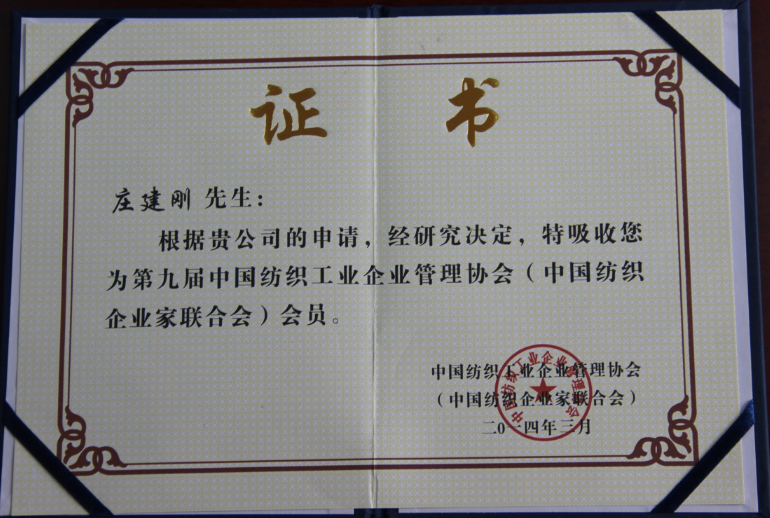 证书
庄建刚 先生：
根据贵公司的申请，经研究决定，特吸收您
为第九届中国纺织工业企业管理协会（中国纺织
企业家联合会）会员。
中国纺织工业企业管理协会
（中国纺织企业家联合会）
二〇一四年三月
中国纺织工业企业管理协会